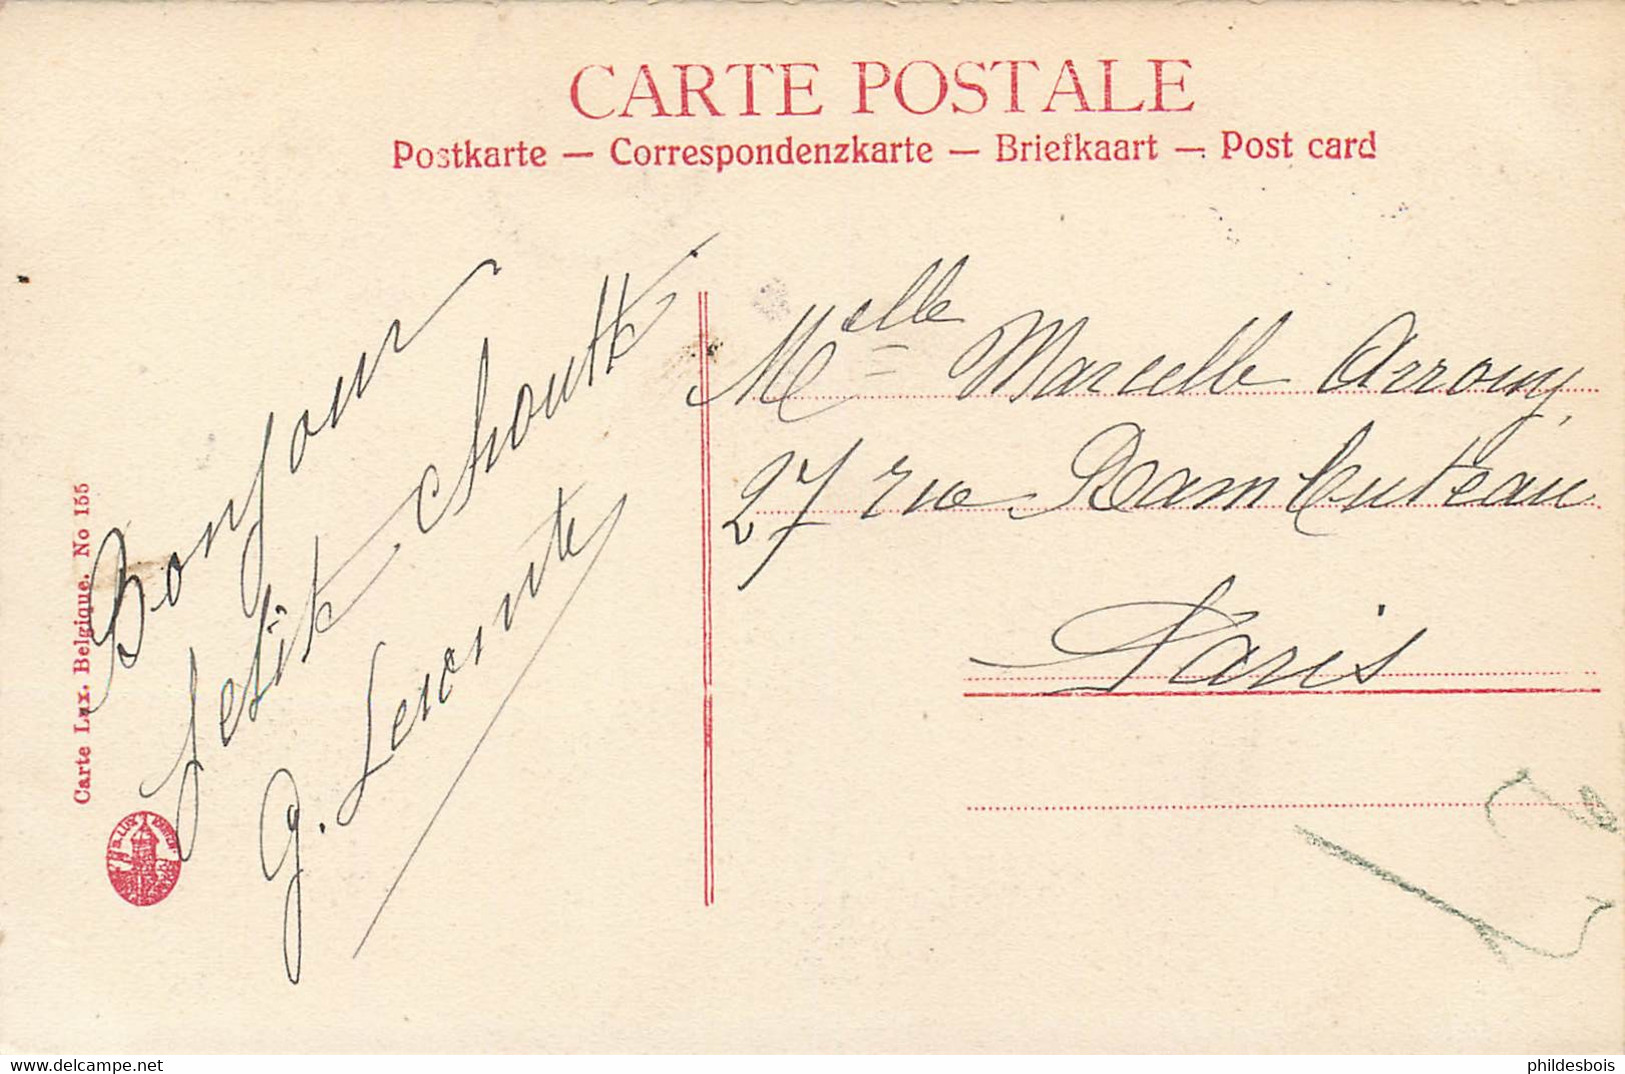 CARTE POSTALE
Postkarte — Correspondenzkarte — Briefkaart — Post card
Bonjour
petite choutte
G. Lecomte
Melle Marcelle Arrouy,
27 rue Rambuteau
Paris
Carte Lux. Belgique. No 155
delcampe.net
phildesbois